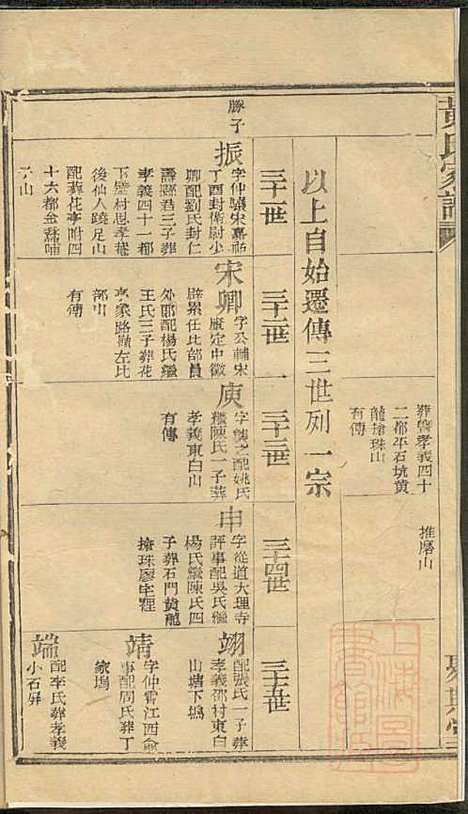 黃氏家譜
葬磐孝義四十
二都平石坑黄
龍搶珠山
有傳
推磨山
以上自始遷傳三世列一宗
三十一世
三十二世
三十三世
三十四世
三十五世
勝子
振
字仲驤宋嘉祐
丁酉封衛尉少
卿配劉氏封仁
壽縣君三子葬
孝義四十一都
下壁村思孝菴
後仙人蹺足山
配葬花亭附四
十六都金喬
山
宋卿
字公輔宋
慶定中徵
辟累任比部員
外郎配楊氏繼
王氏三子葬花
亭象路嶺左比
部山
有傳
庚
字夔之配姚氏
繼陳氏一子葬
孝義東白山
有傳
申
字從道大理寺
評事配吳氏繼
楊氏繼陳氏四
子葬石門黄龍
搶珠廖宅裡
翊
配張氏一子葬
孝義邵村東白
山塘下塢
靖
字仲霄江西僉
事配周氏葬丁
家塢
端
配李氏葬孝義
小石驛